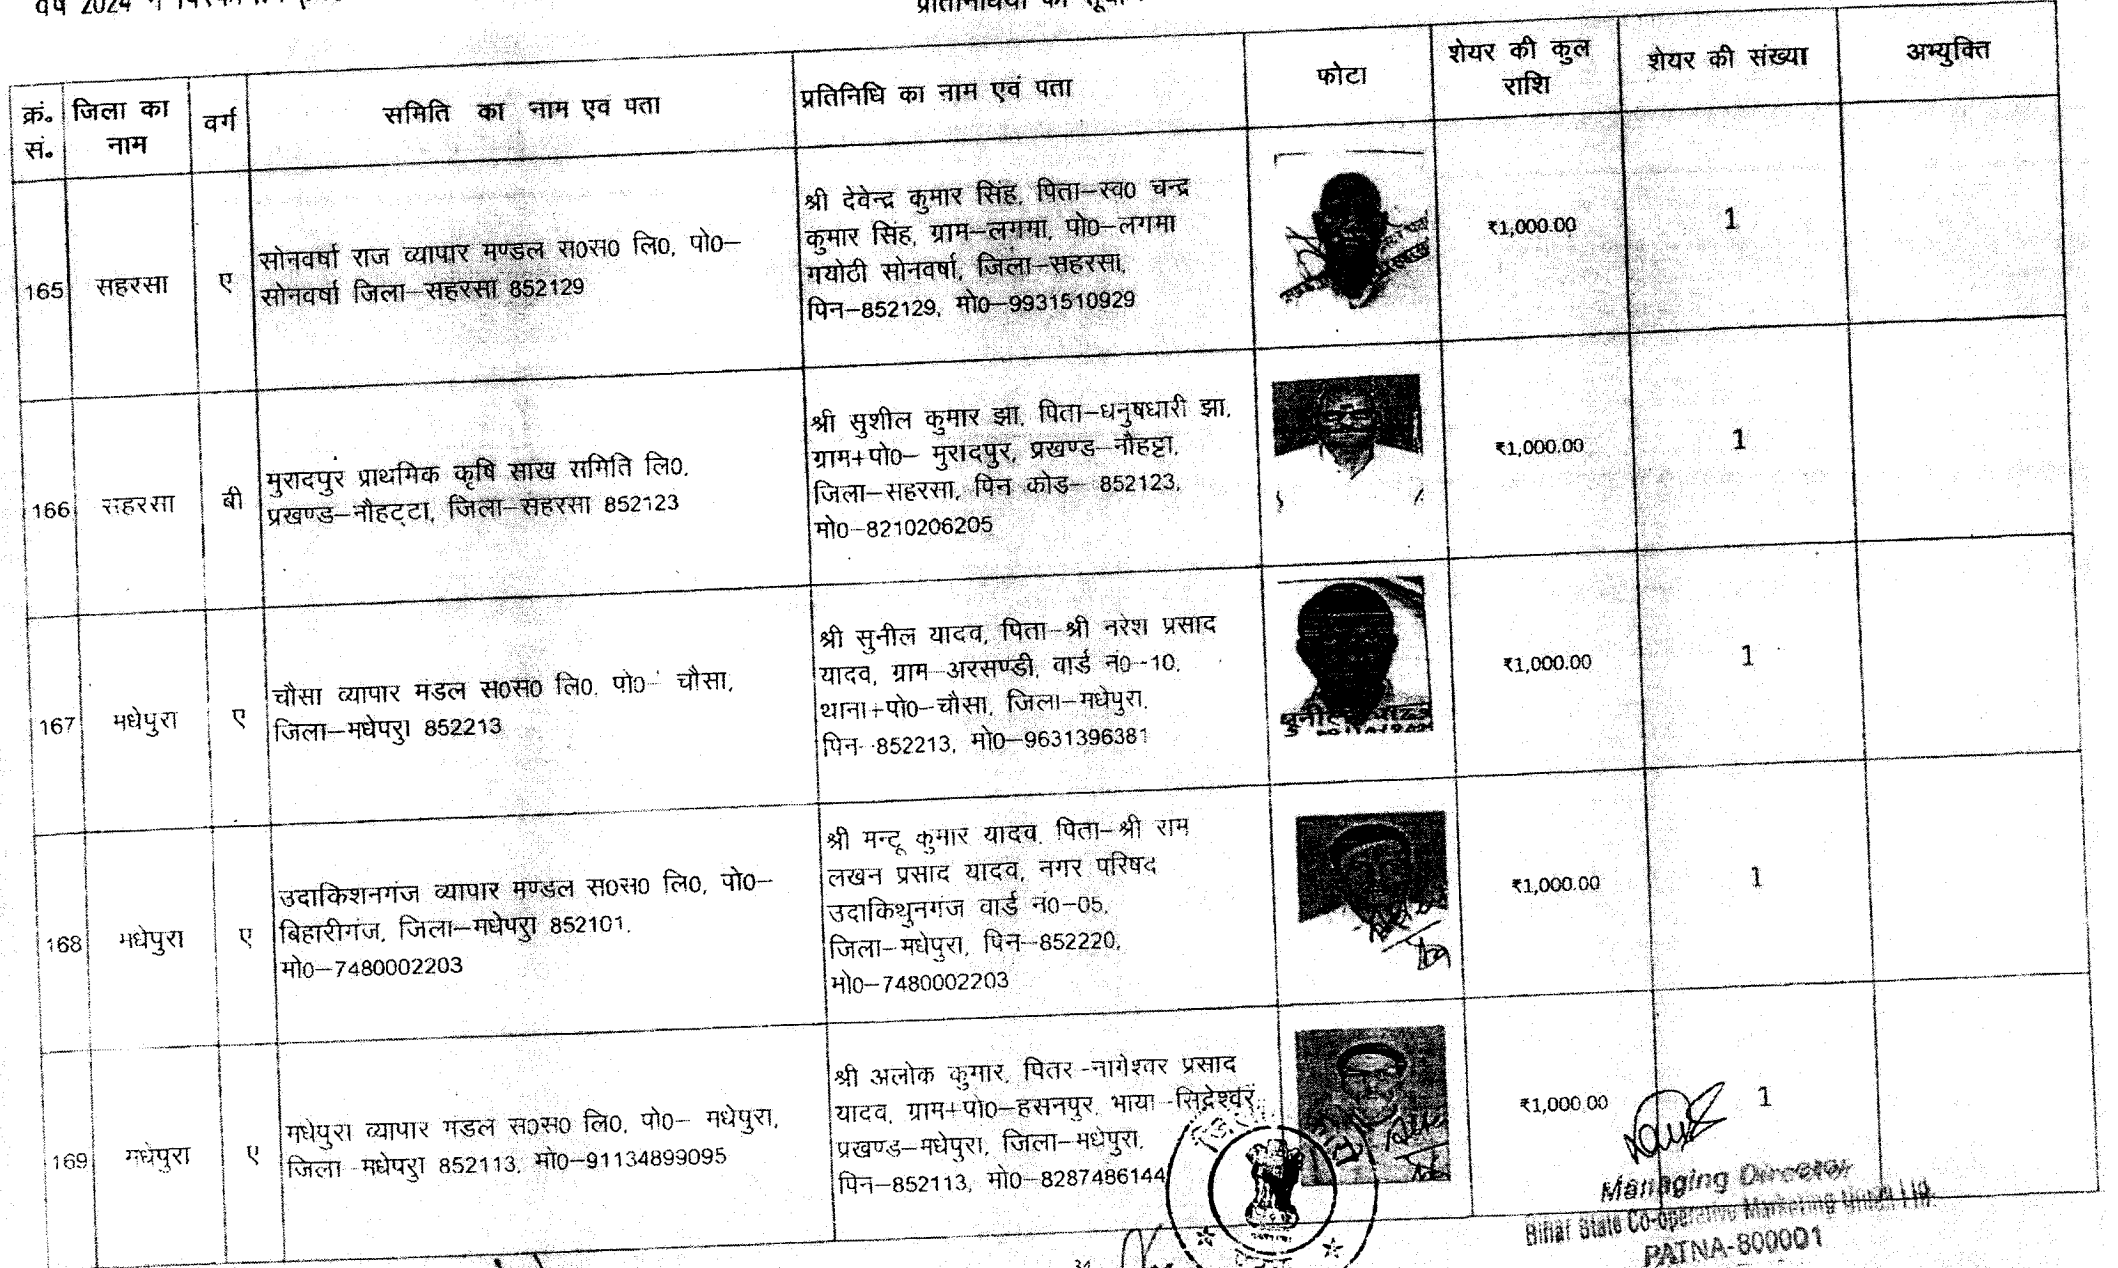 वर्ष 2024
क्रं॰ सं॰
जिला का नाम
वर्ग
समिति का नाम एवं पता
प्रतिनिधि का नाम एवं पता
फोटा
शेयर की कुल राशि
शेयर की संख्या
अभ्युक्ति
165
सहरसा
ए
सोनवर्षा राज व्यापार मण्डल स0स0 लि0, पो0–
सोनवर्षा जिला–सहरसा 852129
श्री देवेन्द्र कुमार सिंह, पिता–स्व0 चन्द्र
कुमार सिंह, ग्राम–लगमा, पो0–लगमा
गयोठी सोनवर्षा, जिला–सहरसा,
पिन–852129, मो0–9931510929
₹1,000.00
1
166
सहरसा
बी
मुरादपुर प्राथमिक कृषि साख समिति लि0,
प्रखण्ड–नौहट्टा, जिला–सहरसा 852123
श्री सुशील कुमार झा, पिता–धनुषधारी झा,
ग्राम+पो0– मुरादपुर, प्रखण्ड–नौहट्टा,
जिला–सहरसा, पिन कोड– 852123,
मो0–8210206205
₹1,000.00
1
167
मधेपुरा
ए
चौसा व्यापार मंडल स0स0 लि0, पो0– चौसा,
जिला–मधेपरुा 852213
श्री सुनील यादव, पिता–श्री नरेश प्रसाद
यादव, ग्राम–अरसण्डी, वार्ड नं0–10,
थाना+पो0–चौसा, जिला–मधेपुरा,
पिन–852213, मो0–9631396381
₹1,000.00
1
168
मधेपुरा
ए
उदाकिशनगंज व्यापार मण्डल स0स0 लि0, पो0–
बिहारीगंज, जिला–मधेपरुा 852101,
मो0–7480002203
श्री मन्टू कुमार यादव, पिता–श्री राम
लखन प्रसाद यादव, नगर परिषद
उदाकिथुनगंज वार्ड नं0–05,
जिला–मधेपुरा, पिन–852220,
मो0–7480002203
₹1,000.00
1
169
मधेपुरा
ए
मधेपुरा व्यापार मंडल स0स0 लि0, पो0– मधेपुरा,
जिला–मधेपरुा 852113, मो0–91134899095
श्री अलोक कुमार, पितर–नागेश्वर प्रसाद
यादव, ग्राम+पो0–हसनपुर, भाया–सिद्रेश्वर,
प्रखण्ड–मधेपुरा, जिला–मधेपुरा,
पिन–852113, मो0–8287486144
₹1,000.00
1
Managing Director
Bihar State Co-operative Marketing Union Ltd.
PATNA-800001